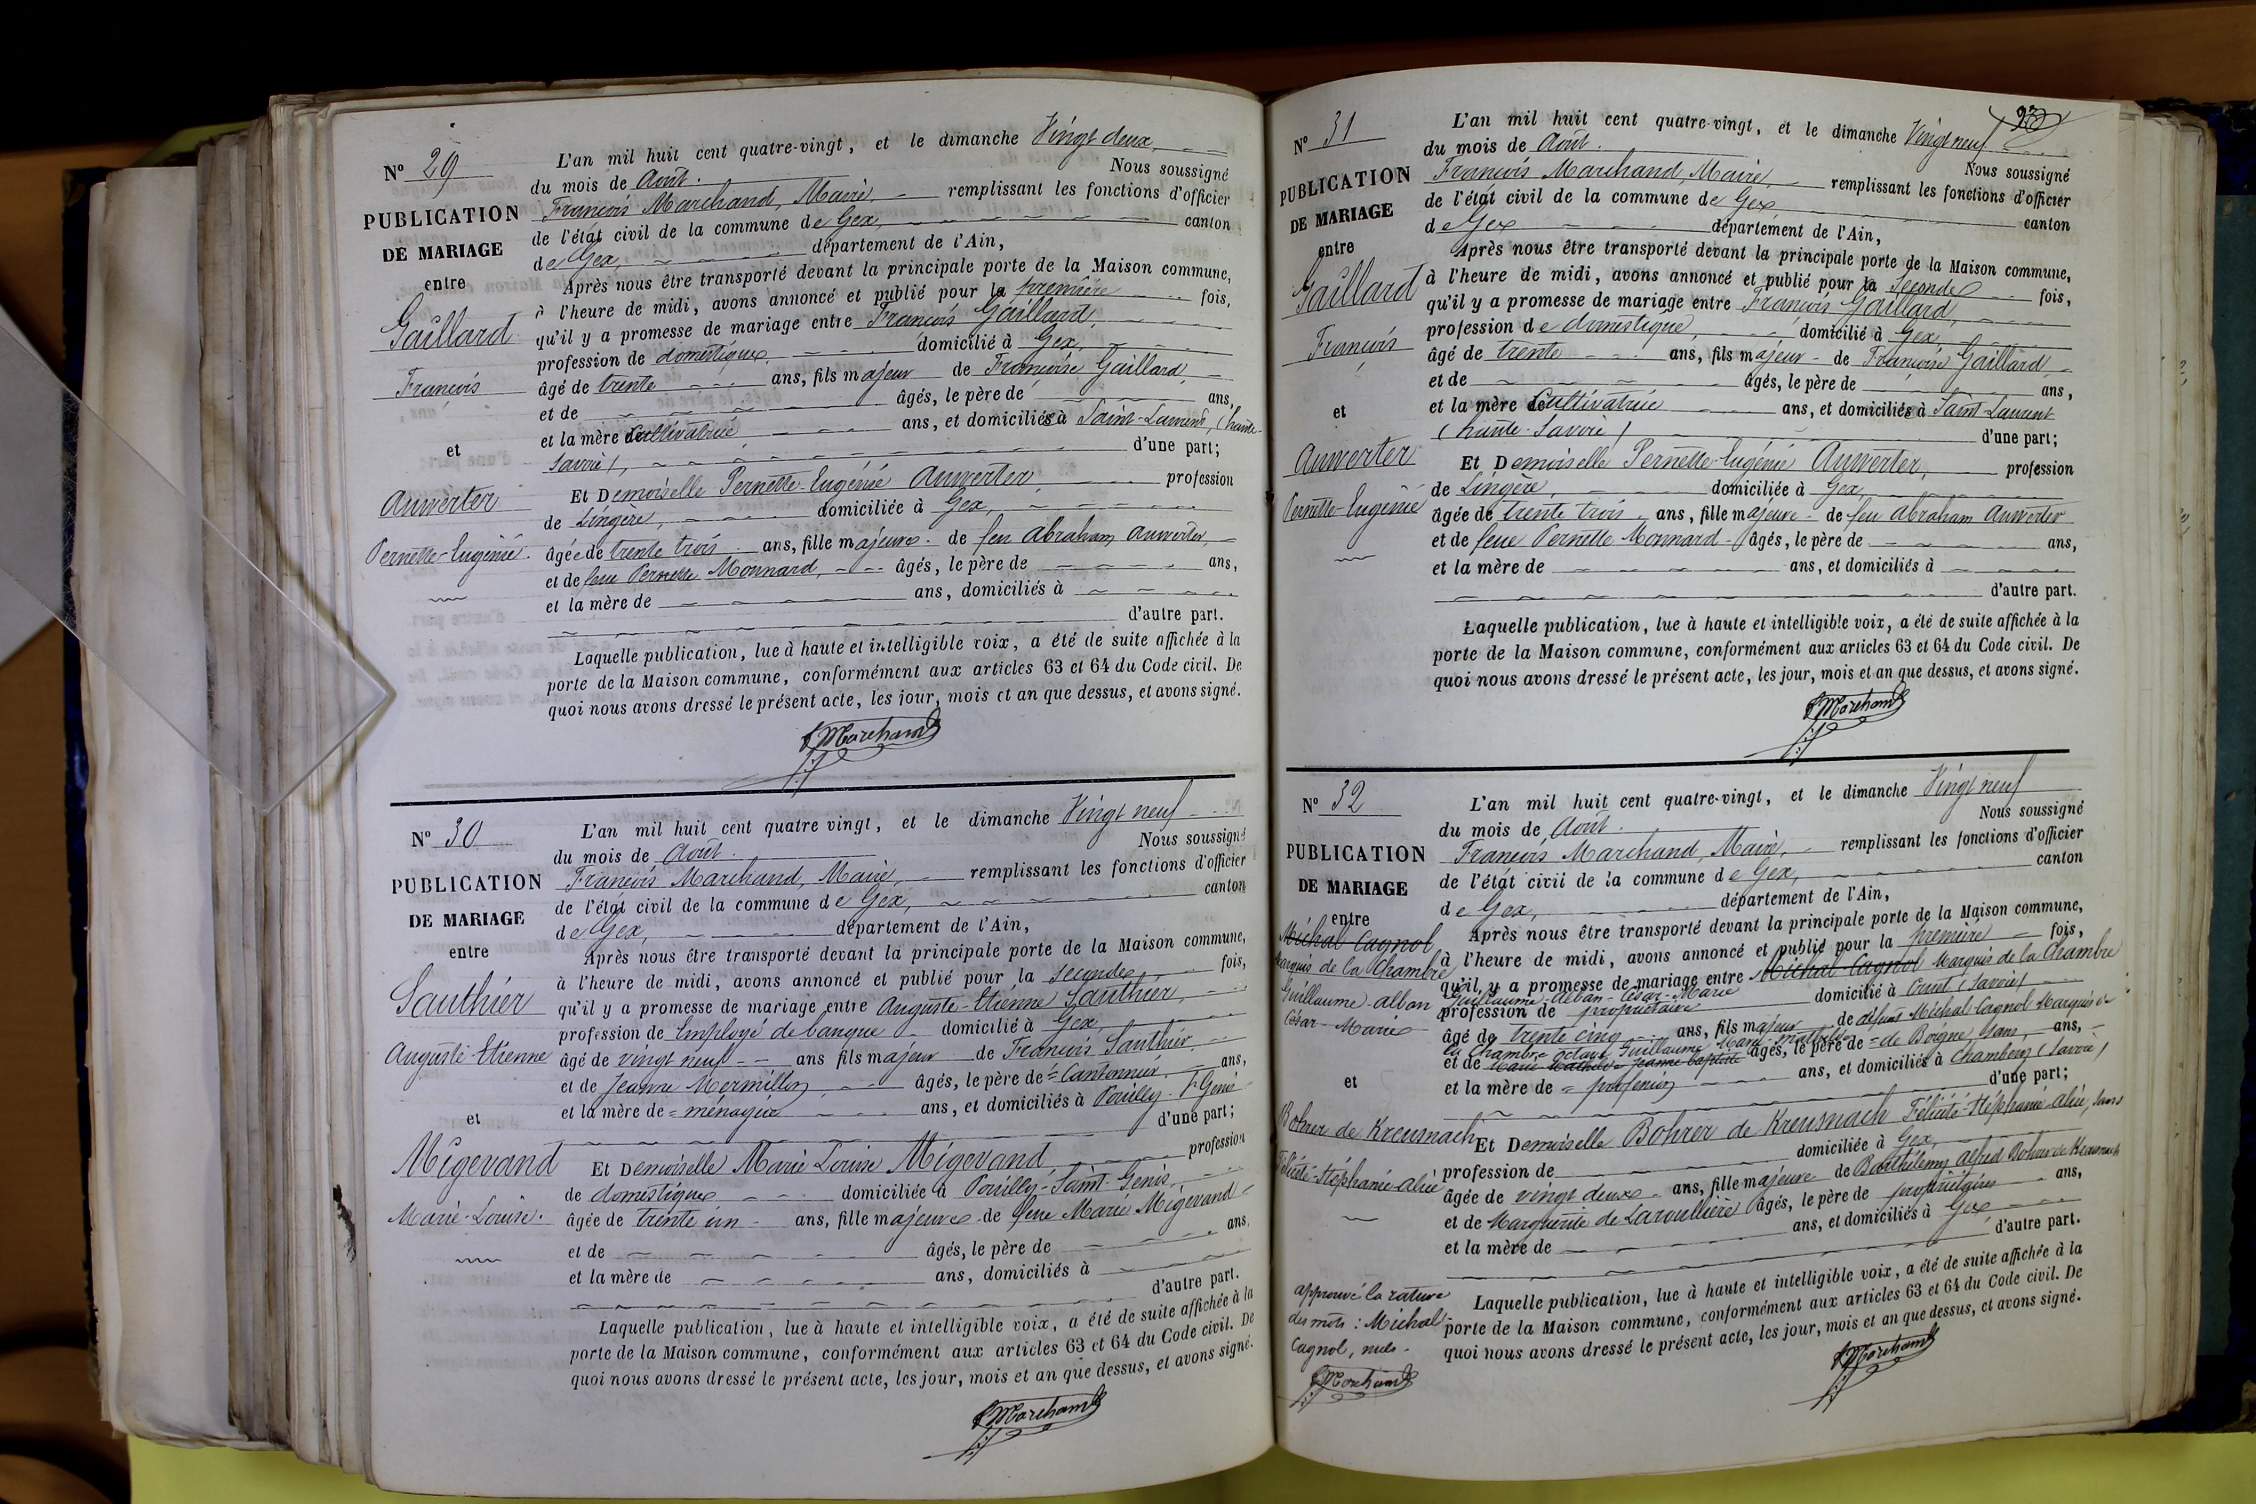 N° 29
PUBLICATION
DE MARIAGE
entre
Gaillard
François
et
Anwerter
Pernette-Eugénie.
L'an mil huit cent quatre-vingt, et le dimanche Vingt deux,
du mois de Août. Nous soussigné
François Marchand, Maire, remplissant les fonctions d'officier
de l'état civil de la commune de Gex, canton
de Gex, département de l'Ain,
Après nous être transporté devant la principale porte de la Maison commune,
à l'heure de midi, avons annoncé et publié pour la première fois,
qu'il y a promesse de mariage entre François Gaillard,
profession de domestique, domicilié à Gex,
âgé de trente ans, fils majeur de Françoise Gaillard,
et de âgés, le père de ans,
et la mère de cultivatrice ans, et domiciliés à Saint-Laurent, (haute-
Savoie), d'une part;
Et Demoiselle Pernette-Eugénie Anwerter, profession
de Lingère, domiciliée à Gex,
âgée de trente trois ans, fille majeure de feu Abraham Anwerter,
et de feue Pernette Monnard, âgés, le père de ans,
et la mère de ans, domiciliés à
d'autre part.
Laquelle publication, lue à haute et intelligible voix, a été de suite affichée à la
porte de la Maison commune, conformément aux articles 63 et 64 du Code civil. De
quoi nous avons dressé le présent acte, les jour, mois et an que dessus, et avons signé.
F Marchand
N° 30
PUBLICATION
DE MARIAGE
entre
Sauthier
Auguste-Etienne
et
Mégevand
Marie-Louise.
L'an mil huit cent quatre vingt, et le dimanche Vingt neuf
du mois de Août. Nous soussigné
François Marchand, Maire, remplissant les fonctions d'officier
de l'état civil de la commune de Gex, canton
de Gex, département de l'Ain,
Après nous être transporté devant la principale porte de la Maison commune,
à l'heure de midi, avons annoncé et publié pour la seconde fois,
qu'il y a promesse de mariage entre Auguste-Etienne Sauthier,
profession de Employé de banque domicilié à Gex,
âgé de vingt neuf ans fils majeur de François Sauthier,
et de Jeanne Mermillon, âgés, le père de = Cantonnier, ans,
et la mère de = ménagère ans, et domiciliés à Pouilly-St Genis
d'une part;
Et Demoiselle Marie Louise Mégevand profession
de domestique domiciliée à Pouilly-Saint-Genis
âgée de trente un ans, fille majeure de feue Marie Mégevand
et de âgés, le père de ans,
et la mère de ans, domiciliés à
d'autre part.
Laquelle publication, lue à haute et intelligible voix, a été de suite affichée à la
porte de la Maison commune, conformément aux articles 63 et 64 du Code civil. De
quoi nous avons dressé le présent acte, les jour, mois et an que dessus, et avons signé.
F Marchand
N° 31
PUBLICATION
DE MARIAGE
entre
Gaillard
François
et
Anwerter
Pernette-Eugénie
L'an mil huit cent quatre-vingt, et le dimanche Vingt neuf
du mois de Août. Nous soussigné
François Marchand, Maire, remplissant les fonctions d'officier
de l'état civil de la commune de Gex canton
de Gex département de l'Ain,
Après nous être transporté devant la principale porte de la Maison commune,
à l'heure de midi, avons annoncé et publié pour la seconde fois,
qu'il y a promesse de mariage entre François Gaillard,
profession de domestique, domicilié à Gex,
âgé de trente ans, fils majeur de Françoise Gaillard,
et de âgés, le père de ans,
et la mère de Cultivatrice ans, et domiciliés à Saint-Laurent
(haute-Savoie) d'une part;
Et Demoiselle Pernette-Eugénie Anwerter, profession
de Lingère, domiciliée à Gex,
âgée de trente trois ans, fille majeure de feu Abraham Anwerter
et de feue Pernette Monnard âgés, le père de ans,
et la mère de ans, et domiciliés à
d'autre part.
Laquelle publication, lue à haute et intelligible voix, a été de suite affichée à la
porte de la Maison commune, conformément aux articles 63 et 64 du Code civil. De
quoi nous avons dressé le présent acte, les jour, mois et an que dessus, et avons signé.
F Marchand
N° 32
PUBLICATION
DE MARIAGE
entre
Michal Cagnol
Marquis de la Chambre
Guillaume-alban
César-Marie
et
Bohrer de Kreusnach
Félicité-Stéphanie-Alice
approuvé la rature
des mots: Michal-
Cagnol, nuls.
F Marchand
L'an mil huit cent quatre-vingt, et le dimanche Vingt neuf
du mois de Août. Nous soussigné
François Marchand, Maire, remplissant les fonctions d'officier
de l'état civil de la commune de Gex, canton
de Gex, département de l'Ain,
Après nous être transporté devant la principale porte de la Maison commune,
à l'heure de midi, avons annoncé et publié pour la première fois,
qu'il y a promesse de mariage entre Michal Cagnol Marquis de la Chambre
Guillaume-Alban-César-Marie
profession de propriétaire domicilié à Cruet (Savoie)
âgé de trente cinq ans, fils majeur de défunt Michal Cagnol Marquis de
la Chambre Octave Guillaume
et de Marie Mathilde Jeanne Baptiste âgés, le père de = de Boigne, sans ans,
et la mère de = profession ans, et domiciliés à Chambéry (Savoie)
d'une part;
Et Demoiselle Bohrer de Kreusnach Félicité-Stéphanie Alice, sans
profession de domiciliée à Gex,
âgée de vingt deux ans, fille majeure de Barthélemy Alfred Bohrer de Kreusnach
et de Marguerite de Laroullière âgés, le père de propriétaires ans,
et la mère de ans, et domiciliés à Gex
d'autre part.
Laquelle publication, lue à haute et intelligible voix, a été de suite affichée à la
porte de la Maison commune, conformément aux articles 63 et 64 du Code civil. De
quoi nous avons dressé le présent acte, les jour, mois et an que dessus, et avons signé.
F Marchand